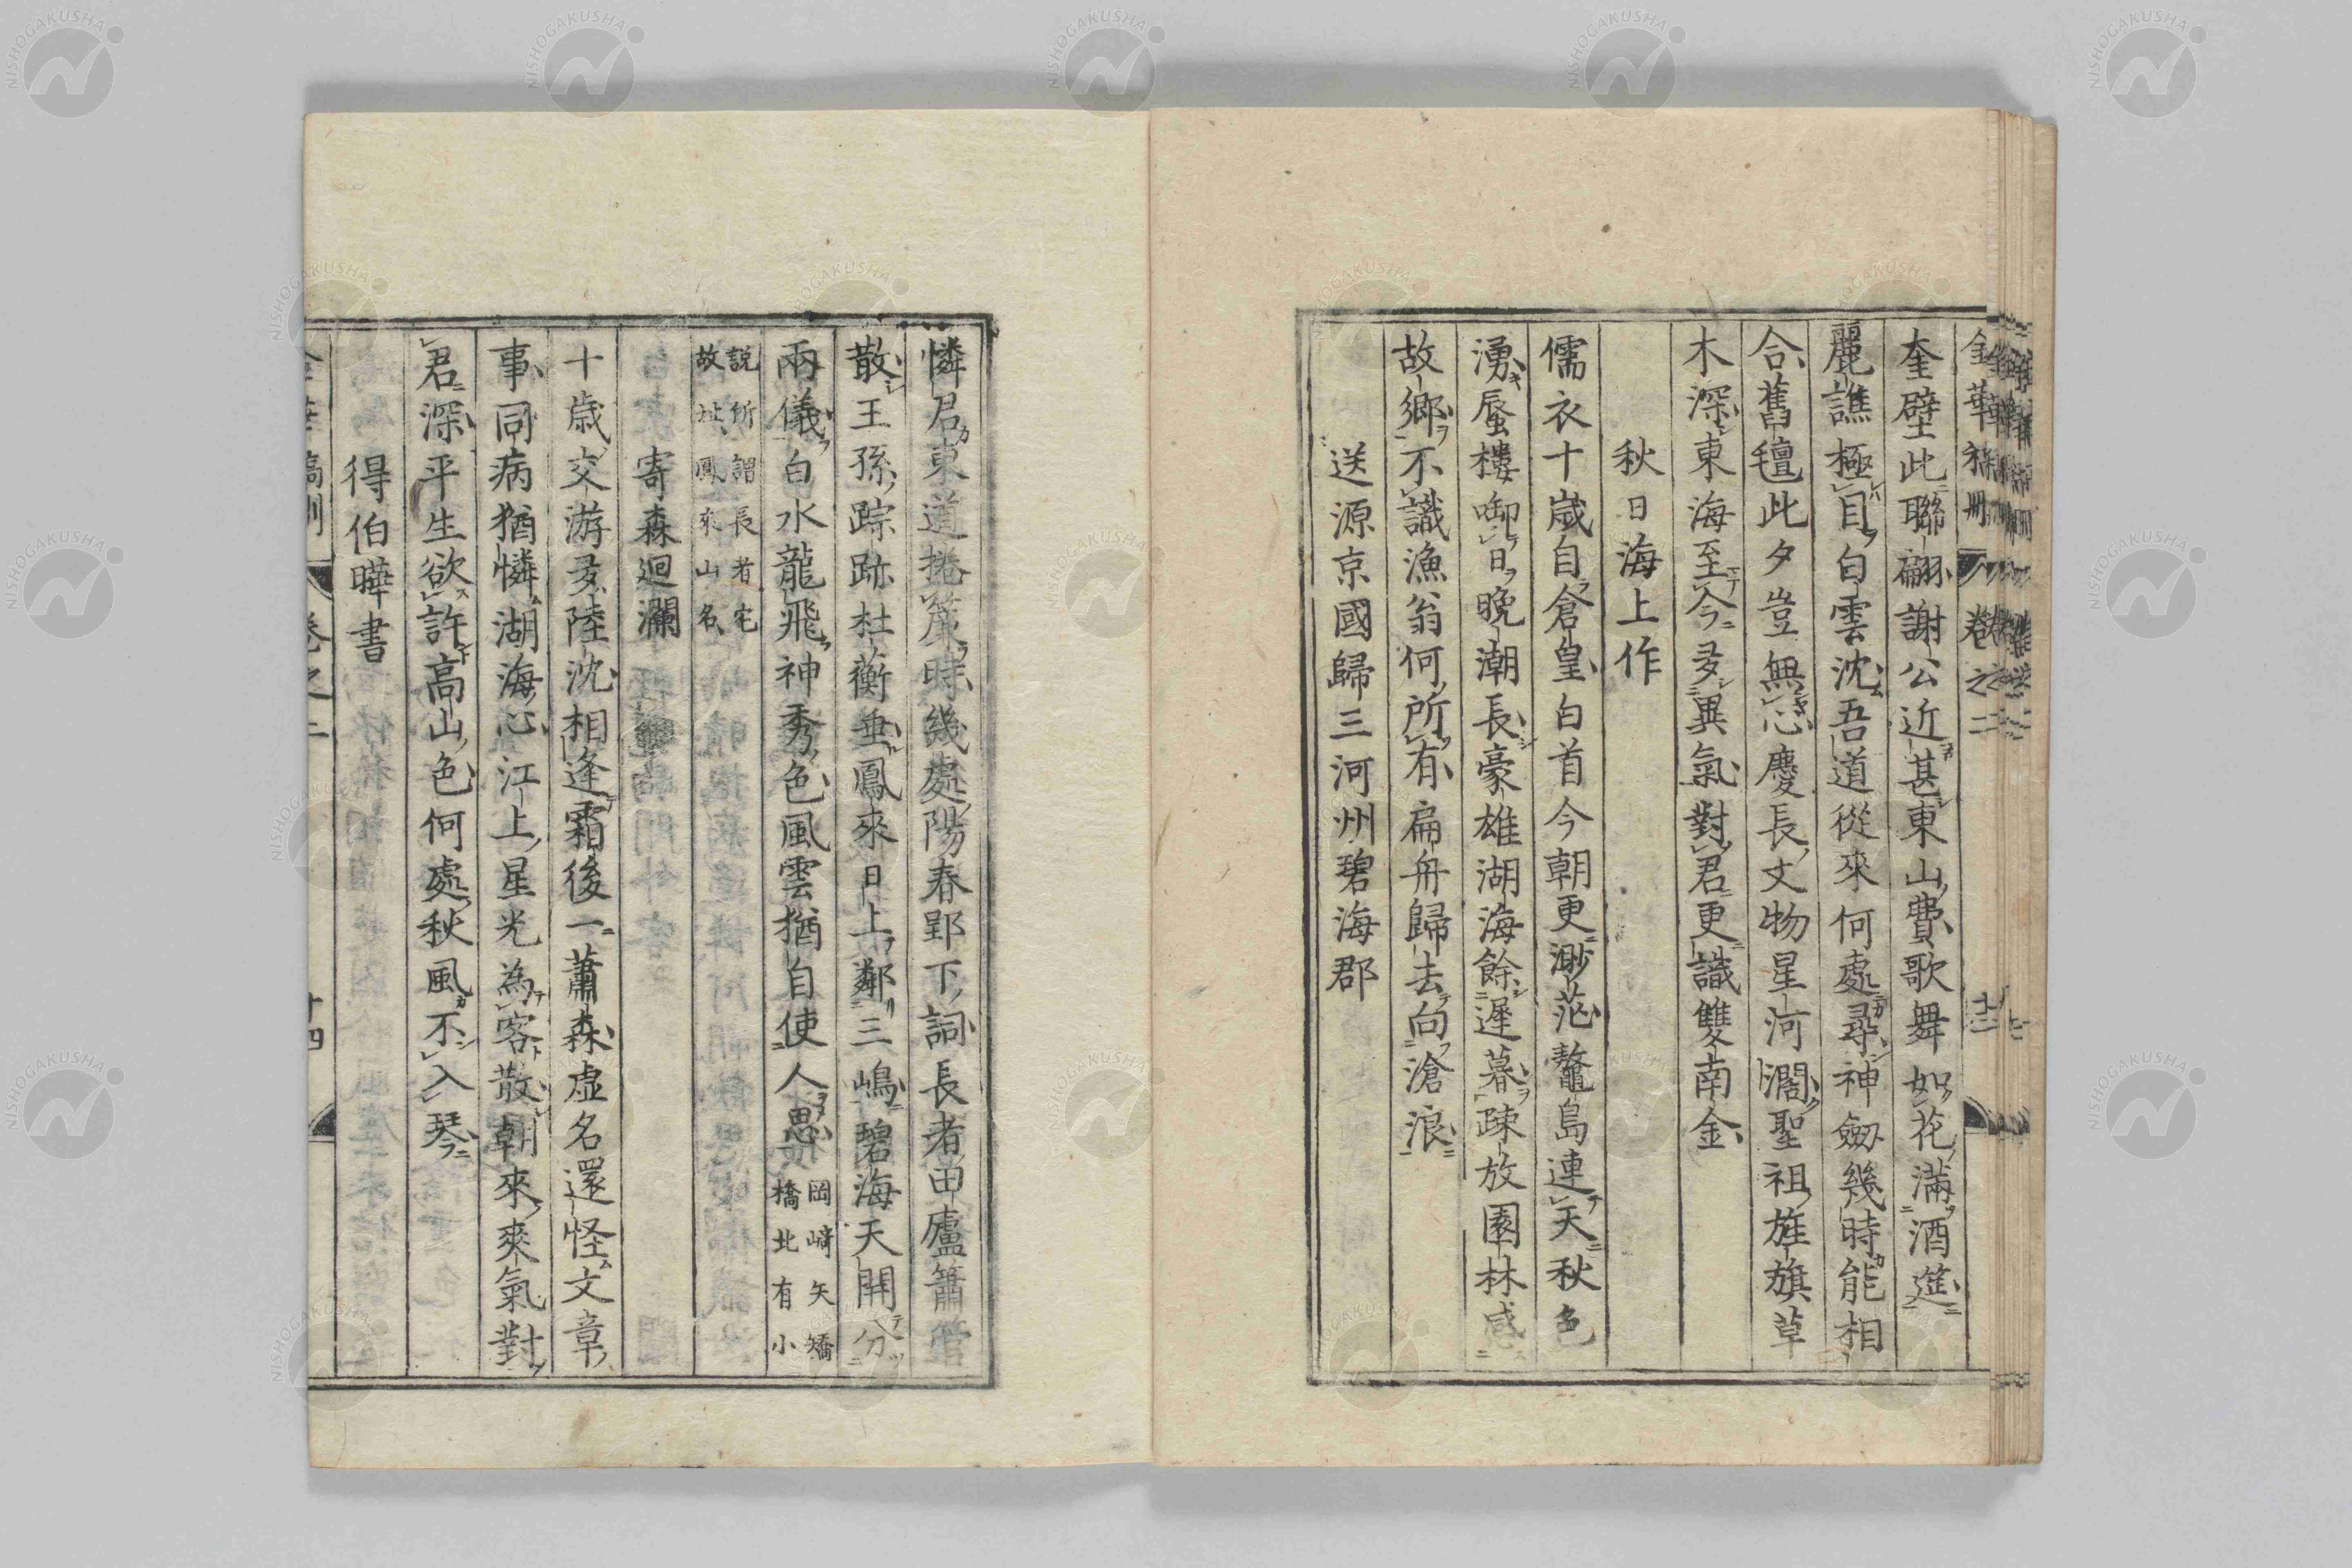 金華稿刪 卷之二
奎壁此聯翩謝公近甚東山費歌舞如花滿酒筵
麗譙極目白雲沈吾道從來何處尋神劒幾時能相
合舊氊此夕豈無心慶長文物星河濶聖祖旌旗草
木深東海至今多異氣對君更識雙南金
秋日海上作
儒衣十歲自倉皇白首今朝更渺茫鼇島連天秋色
湧蜃樓啣日晩潮長豪雄湖海餘遲暮疎放園林感
故鄉不識漁翁何所有扁舟歸去向滄浪
送源京國歸三河州碧海郡
憐君東道捲簾時幾處陽春郢下詞長者田廬簫管
散王孫踪跡杜蘅垂鳳來日上鄰三嶋碧海天開分
兩儀白水龍飛神秀色風雲猶自使人思 岡﨑矢矯橋北有小
說所謂長者宅故址鳳來山名
寄森迴瀾
十歲交游多陸沈相逢霜後一蕭森虛名還怪文章
事同病猶憐湖海心江上星光為客散朝來爽氣對
君深平生欲許高山色何處秋風不入琴
得伯曄書
卷之二
十四
NISHOGAKUSHA